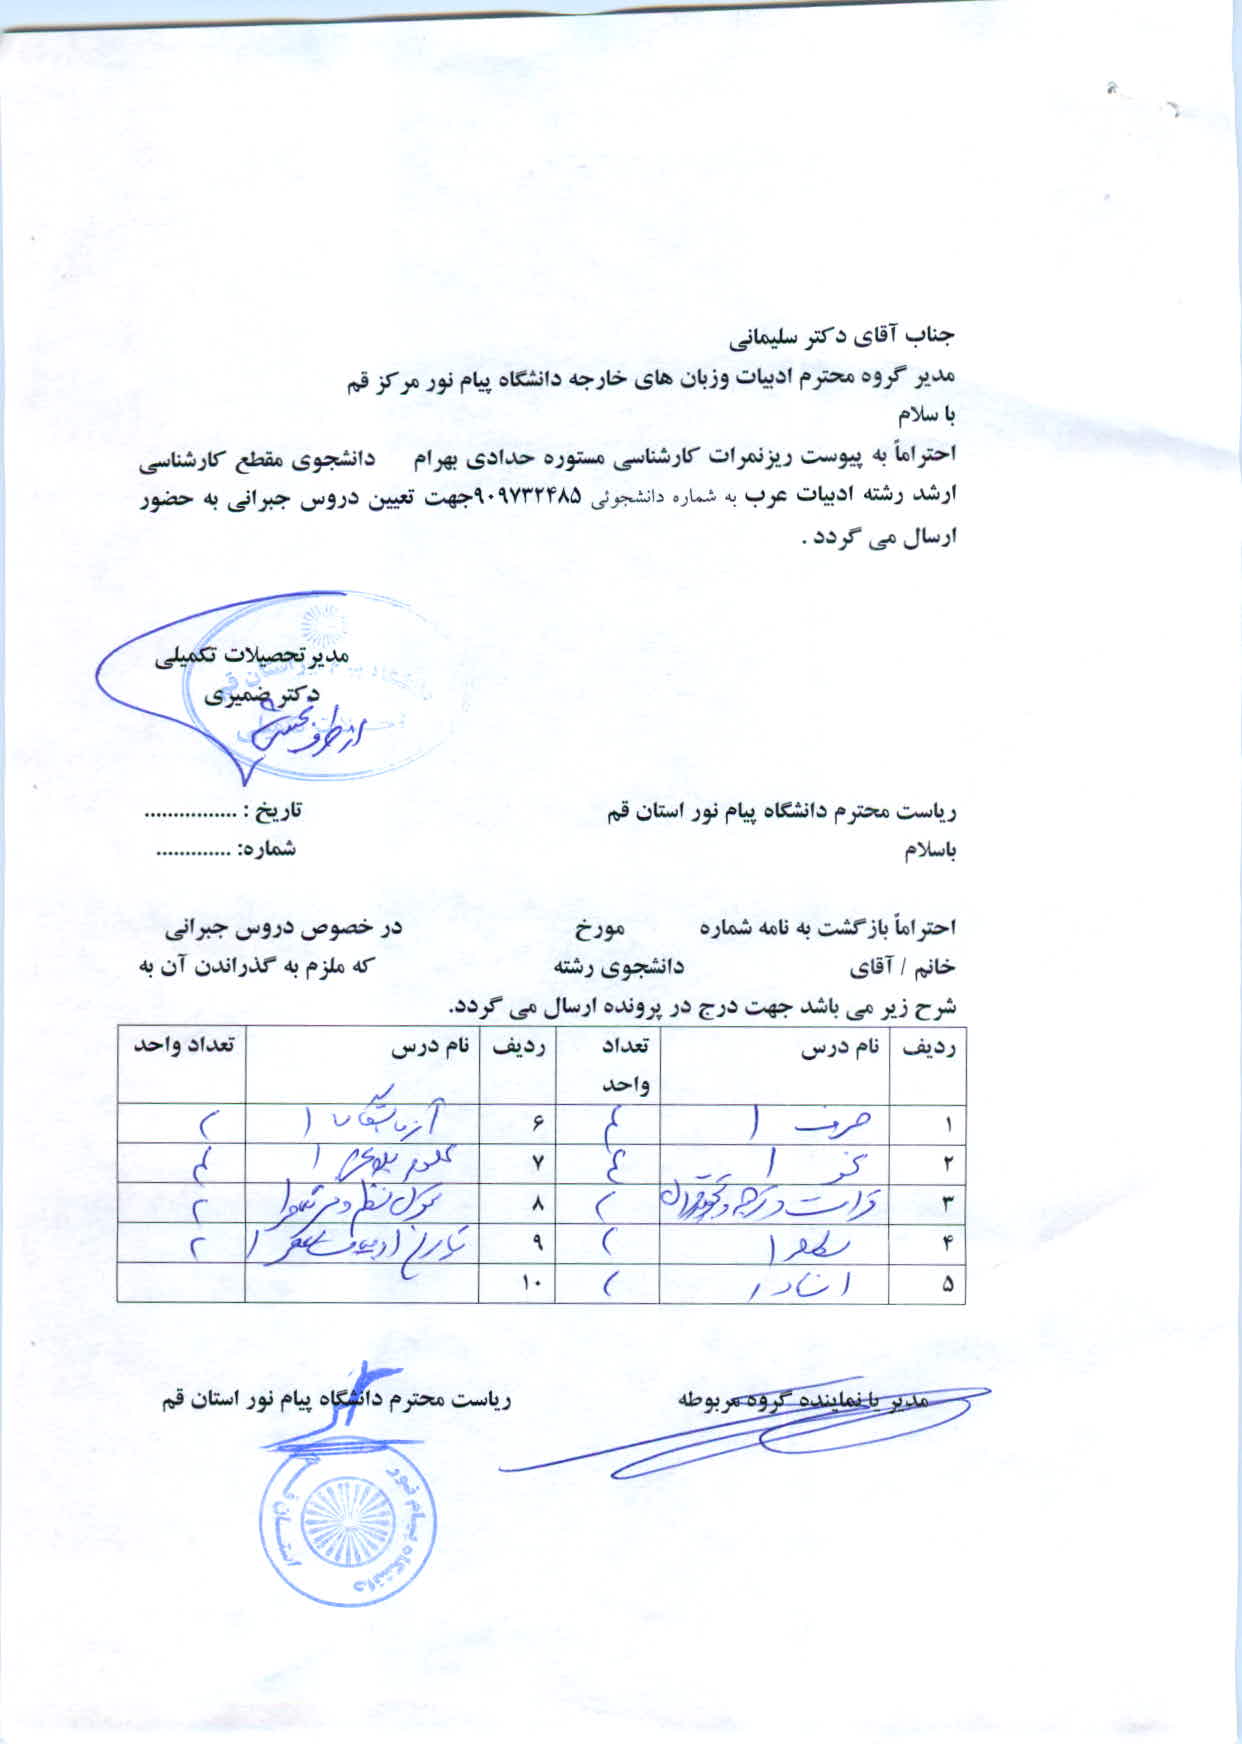 جناب آقای دکتر سلیمانی
مدیر گروه محترم ادبیات وزبان های خارجه دانشگاه پیام نور مرکز قم
با سلام
احتراماً به پیوست ریزنمرات کارشناسی مستوره حدادی بهرام دانشجوی مقطع کارشناسی
ارشد رشته ادبیات عرب به شماره دانشجوئی ۹۰۹۷۳۲۴۸۵جهت تعیین دروس جبرانی به حضور
ارسال می گردد .
مدیرتحصیلات تکمیلی
دکتر ضمیری
از طرف
ریاست محترم دانشگاه پیام نور استان قم تاریخ : ................
باسلام شماره: .............
احتراماً بازگشت به نامه شماره مورخ در خصوص دروس جبرانی
خانم / آقای دانشجوی رشته که ملزم به گذراندن آن به
شرح زیر می باشد جهت درج در پرونده ارسال می گردد.
ردیف نام درس تعداد واحد ردیف نام درس تعداد واحد
۱ صرف ۱ ۴ ۶ آزمایشگاه ۱ ۲
۲ نحو ۱ ۴ ۷ علوم بلاغی ۱ ۴
۳ قرائت و ترجمه و تجوید قرآن ۲ ۸ متون نظم و نثر ۲
۴ ۲ ۹ تاریخ ادبیات معاصر ۱ ۲
۵ انشاء ۱ ۲ ۱۰
مدیر یا نماینده گروه مربوطه ریاست محترم دانشگاه پیام نور استان قم
دانشگاه پیام نور
استان قم